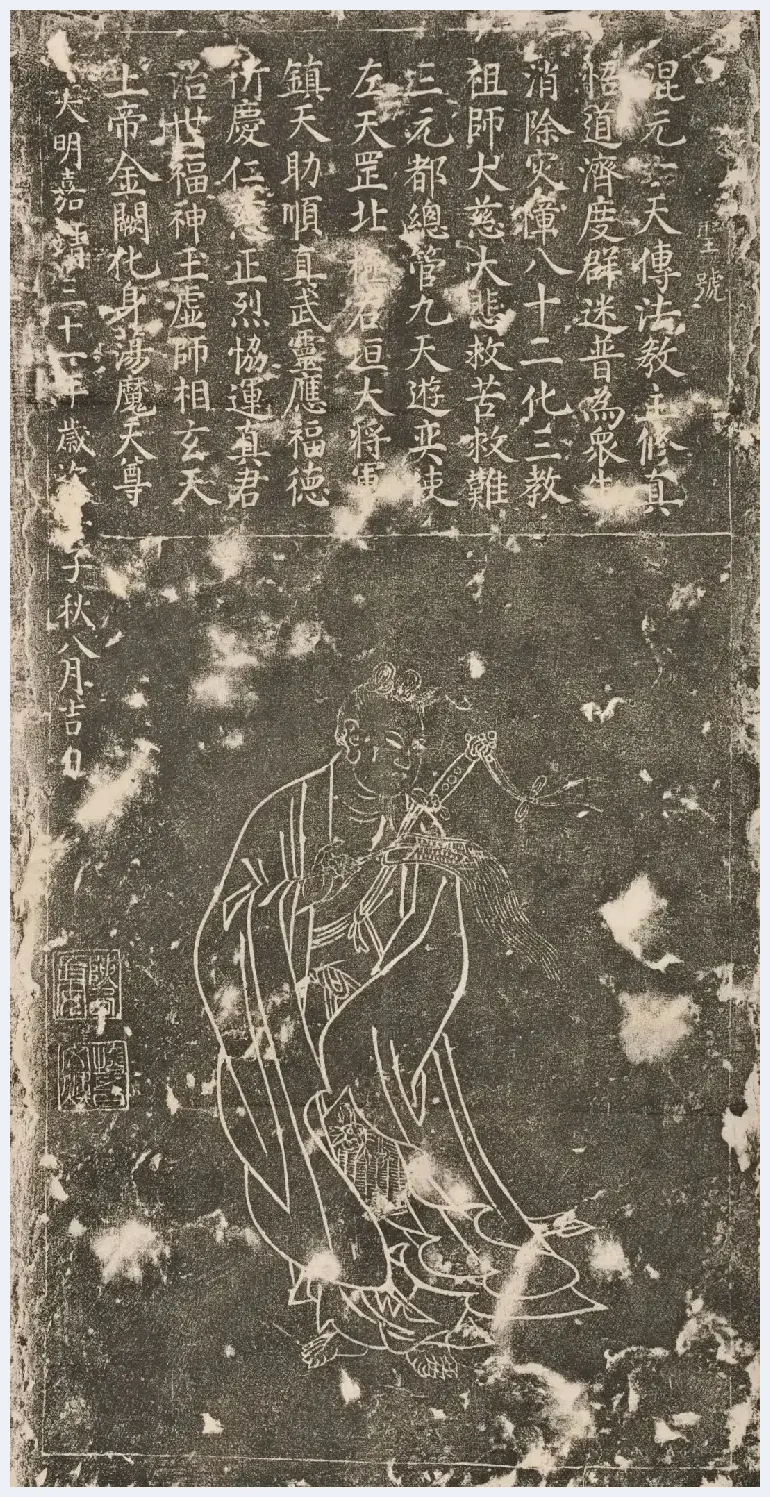 聖號
混元六天傳法教主修真
悟道濟度群迷普為衆生
消除灾障八十二化三教
祖師大慈大悲救苦救難
三元都總管九天遊奕使
左天罡北極右垣大將軍
鎮天助順真武靈應福德
衍慶仁慈正烈恊運真君
治世福神玉虛師相玄天
上帝金闕化身蕩魔天尊
大明嘉靖三十一年歲次壬子秋八月吉日